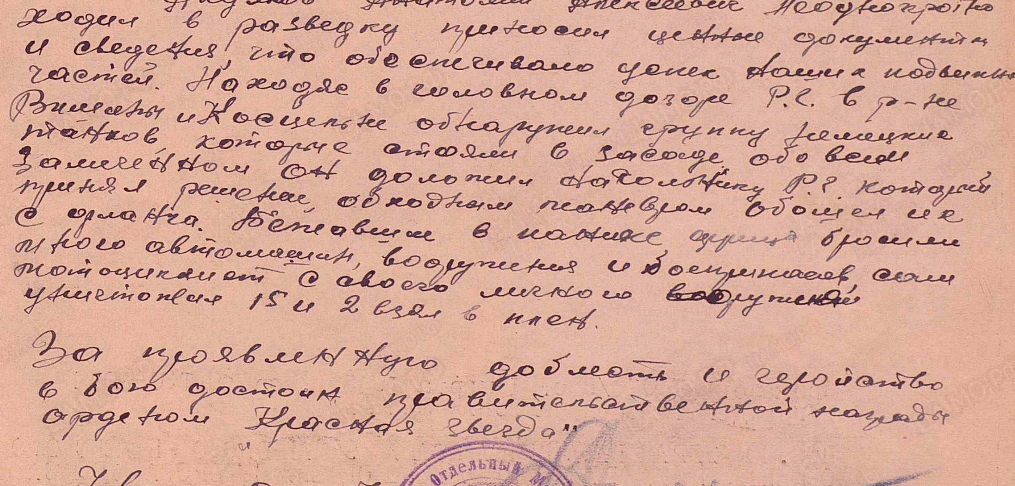 Анатолий Алексеевич Неоднократно
ходил в разведку приносил ценные документы
и сведения, что обеспечивало успех наших подвижных
частей. Находяс в головном дозоре Р.Г. в р-не
и Косцельже обнаружил группу немецких
танков, которые стояли в засаде, обо всем
замеченном он доложил начольнику Р.Г. который
принял решение, обходным маневром обошел их
с фланга. Бежавшие в панике фрицы бросили
много автомашин, вооружения и боеприпасов, сам
мотоциклист с своего личного вооружения
уничтожил 15 и 2 взял в плен.
За проявленную доблесть и геройство
в бою достоин правительственной награды
орденом "Красная звезда"
Отдельный М